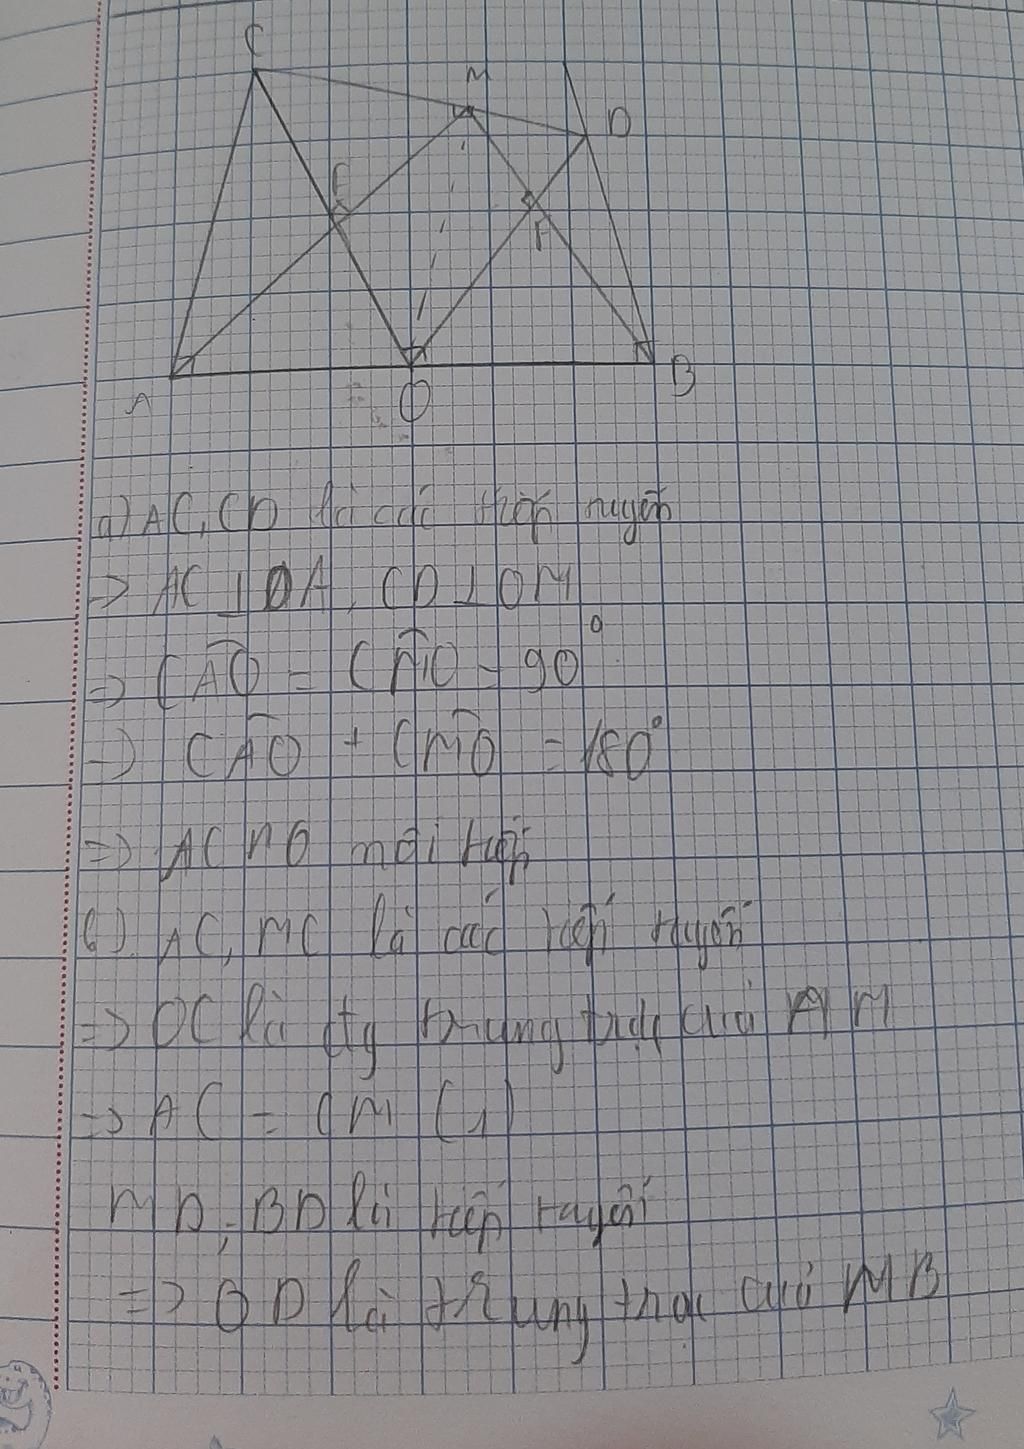 C
M
D
E
F
A
O
B
a) AC, CD là các tiếp tuyến
=> AC ⊥ OA, CD ⊥ OM
=> CÂO = CM̂O = 90°
=> CÂO + CM̂O = 180°
=> ACMO nội tiếp
b) AC, MC là các tiếp tuyến
=> OC là đg trung trực của AM
=> AC = CM (1)
MD, BD là tiếp tuyến
=> OD là trung trực của MB